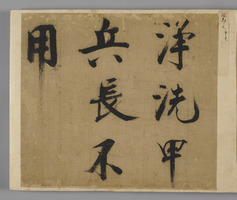 淨洗甲
兵長不
用